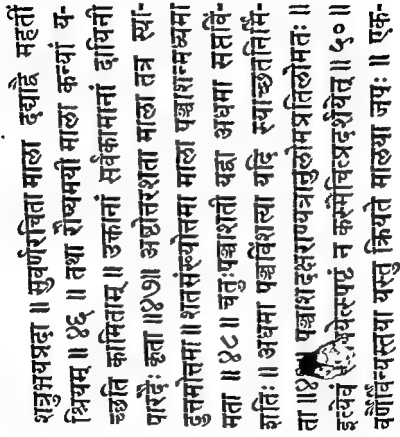 शत्रुभयप्रदा ॥ सुवर्णरचिता माला दद्याद्वै महतीं
श्रियम् ॥ ४६ ॥ तथा रौप्यमयी माला कन्यां य-
च्छति कामिताम् ॥ उक्तानां सर्वकामानां दायिनी
पारदैः कृता ॥४७॥ अष्टोत्तरशता माला तत्र स्या-
दुत्तमोत्तमा ॥ शतसंख्योत्तमा माला पञ्चाशन्मध्यमा
मता ॥ ४८ ॥ चतुःपञ्चाशती यद्वा अधमा सप्तविं-
शतिः ॥ अधमा पञ्चविंशत्या यदि स्याच्छतनिर्मि-
ता ॥४ पञ्चाशदक्षराण्यत्रानुलोमप्रतिलोमतः ॥
इत्येवं येत्स्पष्टं न कस्मैचित्प्रदर्शयेत् ॥ ५० ॥
वर्णैर्विन्यस्तया यस्तु क्रियते मालया जपः ॥ एक-